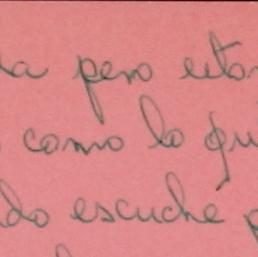 la pero esto
como lo qu
do escuché p